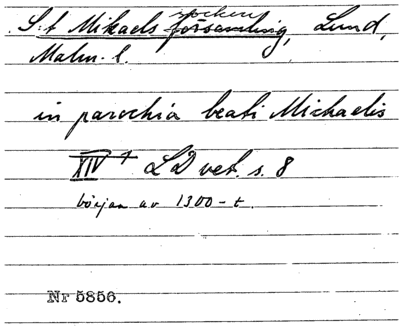 socken
S:t Mikaels församling, Lund,
Malm. l.
in parochia beati Michaelis
XIV 1 LD vet. s. 8
början av 1300-t.
Nr 5856.